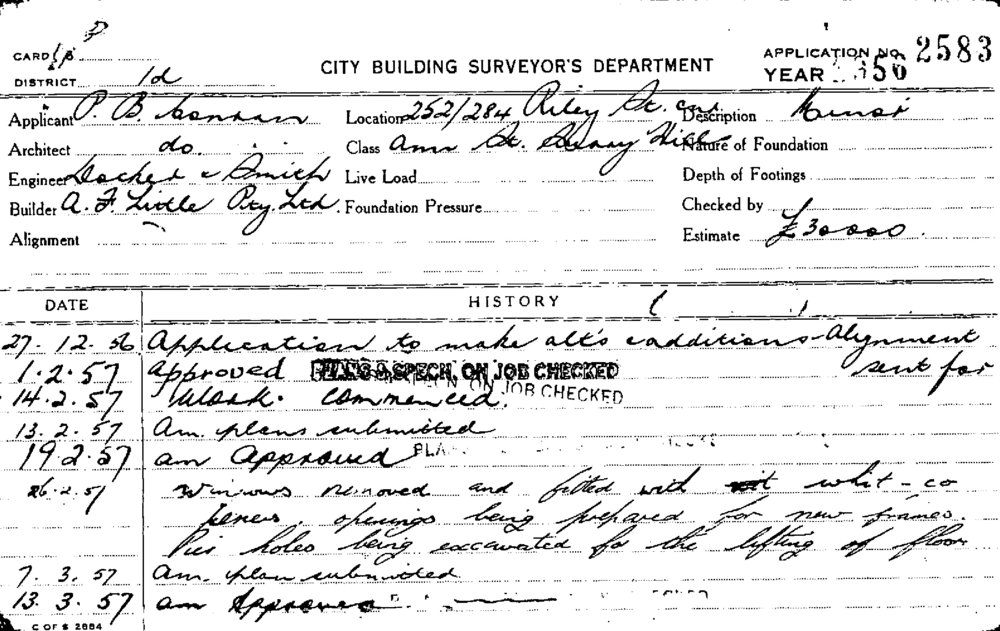 CARD
DISTRICT 1d
CITY BUILDING SURVEYOR'S DEPARTMENT
APPLICATION NO. 2583
YEAR 56
Applicant P. B.
Location 252/284 Riley St. cnr
Description Minor
Architect do.
Class Ann St. Surry Hills
Nature of Foundation
Engineer & Smith
Live Load
Depth of Footings
Builder A. F. Little Pty. Ltd.
Foundation Pressure
Checked by
Alignment
Estimate £30000.
DATE
HISTORY
27. 12. 56 Application to make alt's & additions - Alignment
sent for
1. 2. 57 Approved PLANS & SPECN. ON JOB CHECKED
14. 2. 57 Work. commenced. ON JOB CHECKED
13. 2. 57 Am. plans submitted
19. 2. 57 am Approved PLA
26. 2. 57 Windows removed and fitted with
openings being prepared for new frames.
Pier holes being excavated for the lifting of floor
7. 3. 57 Am. plan submitted
13. 3. 57 am Approved
C OF S 2884